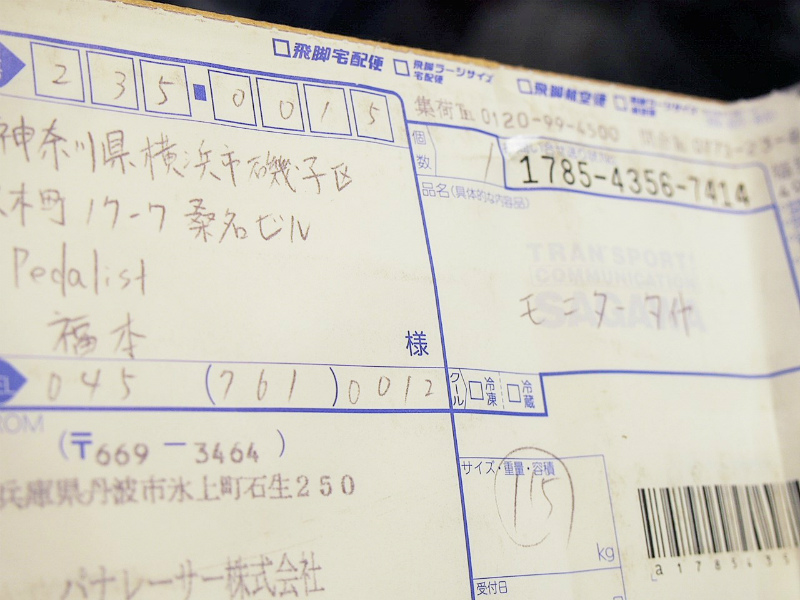 □飛脚宅配便 □飛脚ラージサイズ宅配便 □飛脚航空便
235-0015
集荷TEL 0120-99-4500
神奈川県横浜市磯子区
木町 17-7 桑名ビル
Pedalist
福本
様
個数 1
1785-4356-7414
品名(具体的な内容品)
TRANSPORT!
COMMUNICATION
SAGAWA
モニタータイヤ
045 (761) 0012
クール □冷凍 □冷蔵
ROM
(〒669-3464)
兵庫県丹波市氷上町石生250
パナレーサー株式会社
サイズ・重量・容積
115
kg
受付日
a1785435